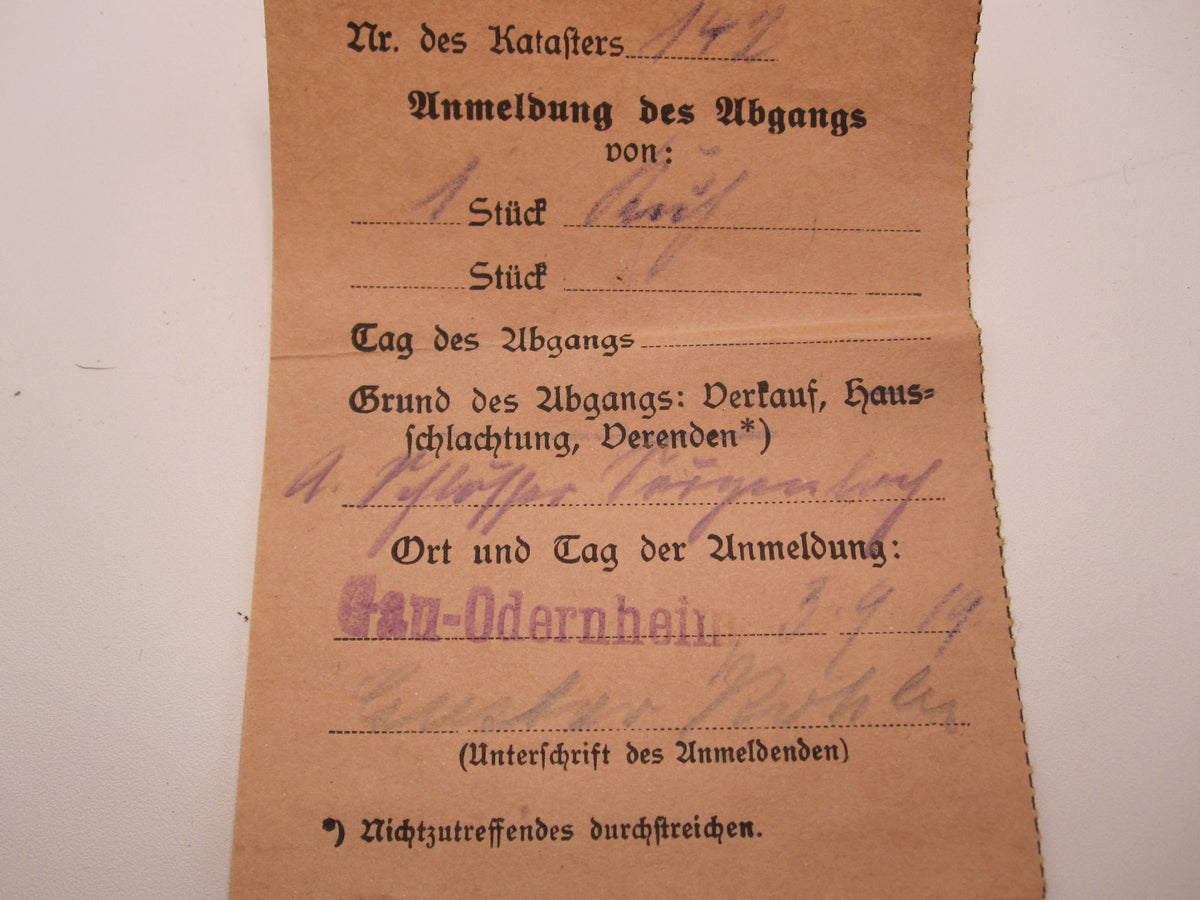 Nr. des Katasters 142
Anmeldung des Abgangs
von:
1 Stück Kuh
Stück
Tag des Abgangs
Grund des Abgangs: Verkauf, Haus=
schlachtung, Verenden*)
A. Schlösser Sörgenloch
Ort und Tag der Anmeldung:
Gau-Odernheim, 3. 9. 19
Gustav Köhler
(Unterschrift des Anmeldenden)
*) Nichtzutreffendes durchstreichen.